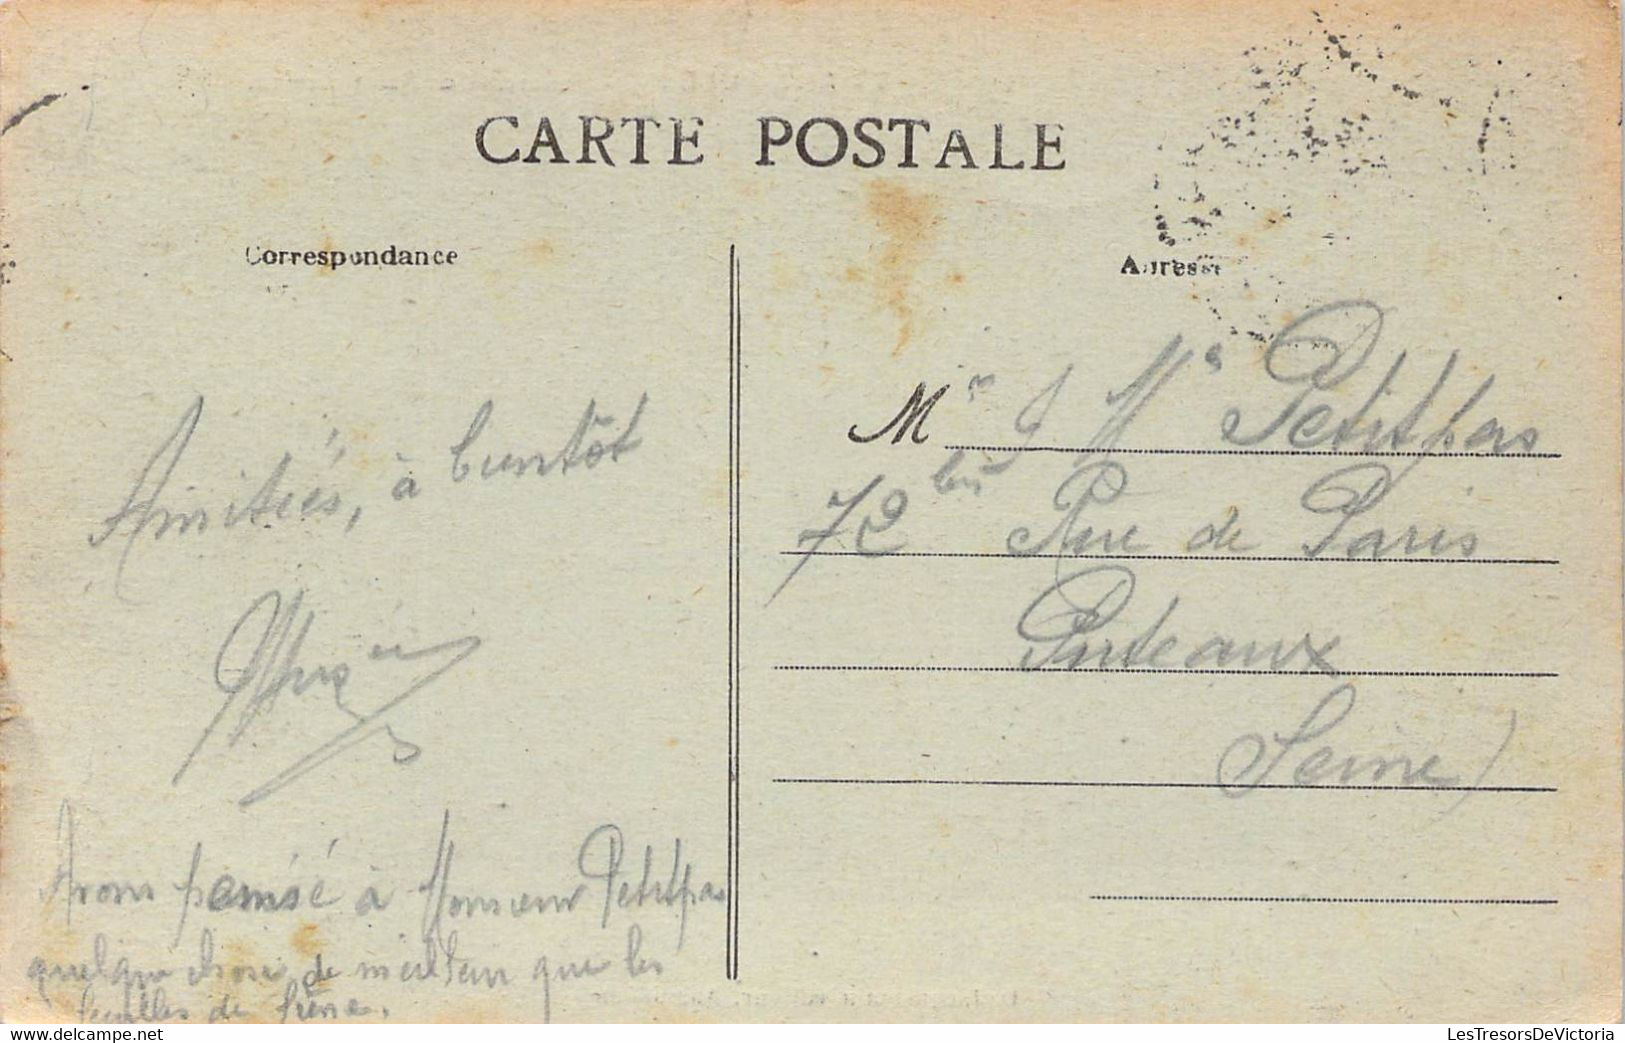 CARTE POSTALE
Correspondance
Adresse
Amitiés, à bientôt
Avons pensé à Monsieur Petitpas
quelque chose de meilleur que les
feuilles de frêne.
Mr & Me Petitpas
72 bis Rue de Paris
Puteaux
Seine)
LesTresorsDeVictoria.com